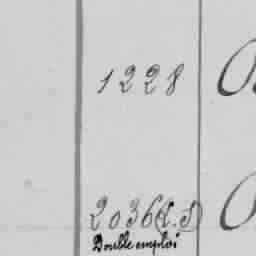 1228
2036(d.s)
Double emploi